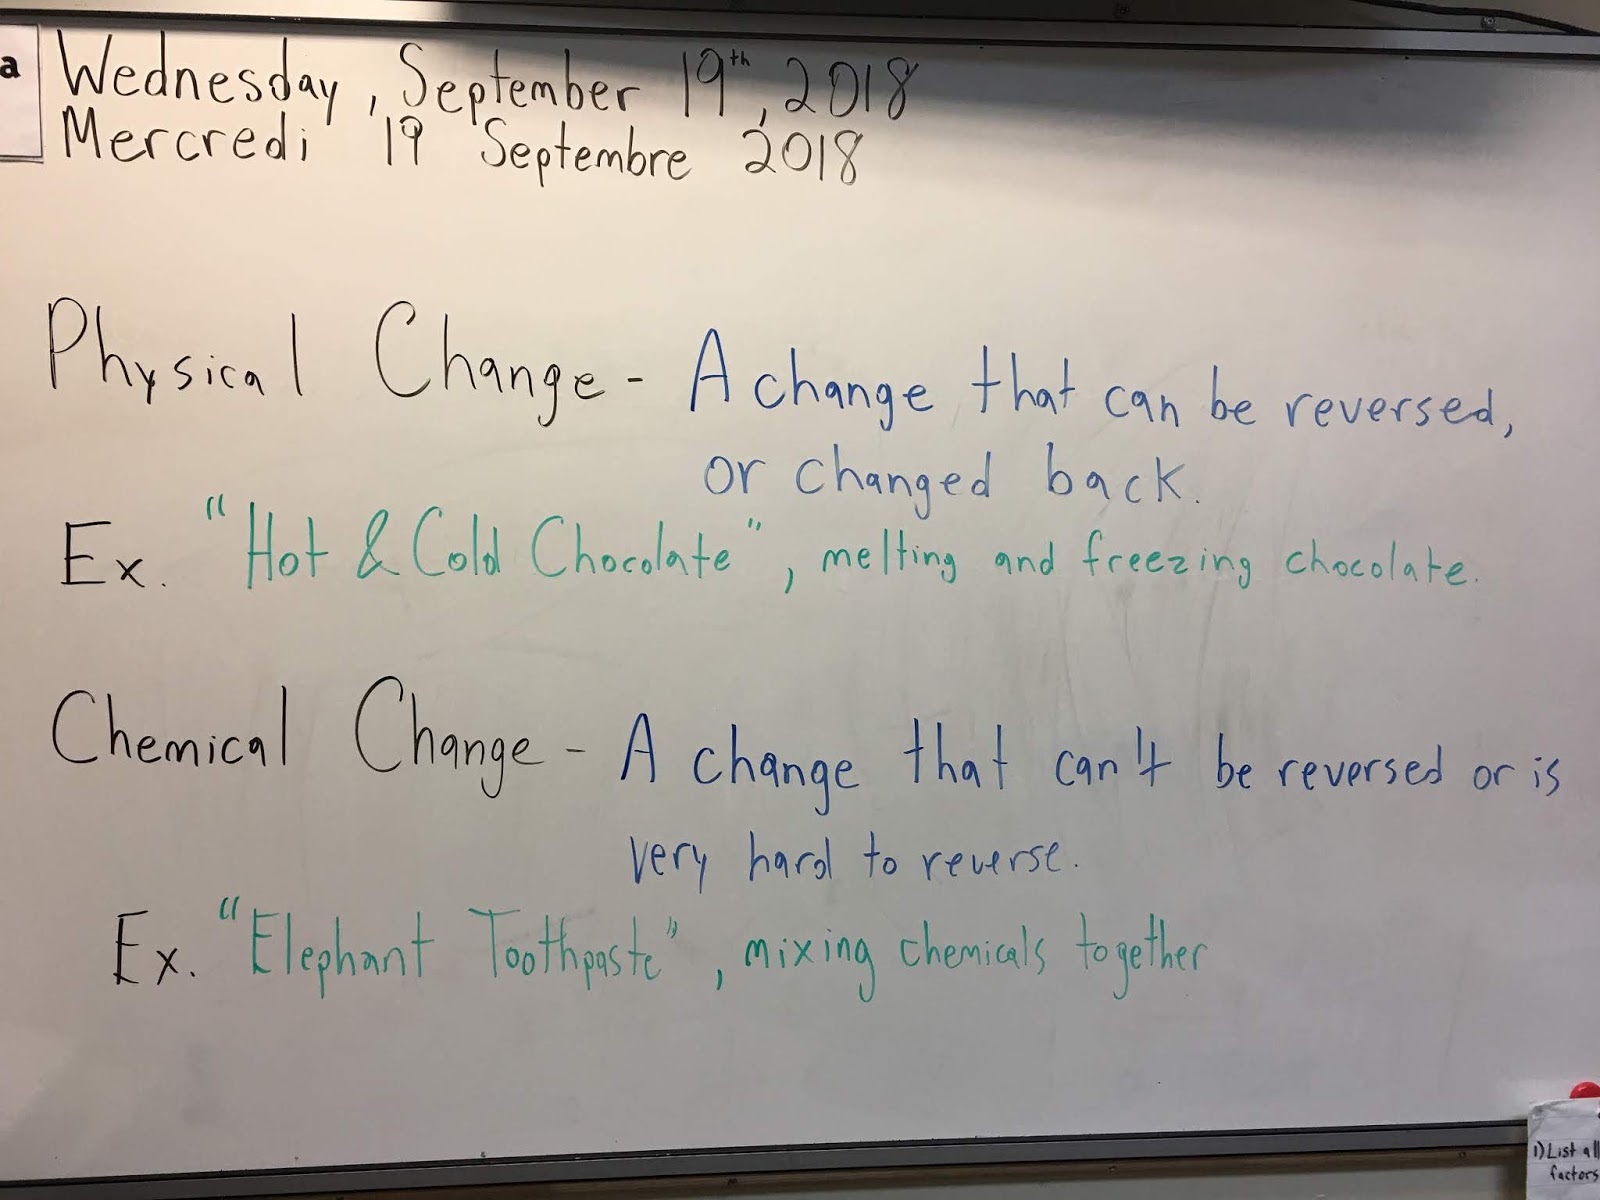 a
Wednesday, September 19th, 2018
Mercredi 19 Septembre 2018
Physical Change - A change that can be reversed,
or changed back.
Ex. "Hot & Cold Chocolate", melting and freezing chocolate.
Chemical Change - A change that can't be reversed or is
very hard to reverse.
Ex. "Elephant Toothpaste", mixing chemicals together
1) List all
factors